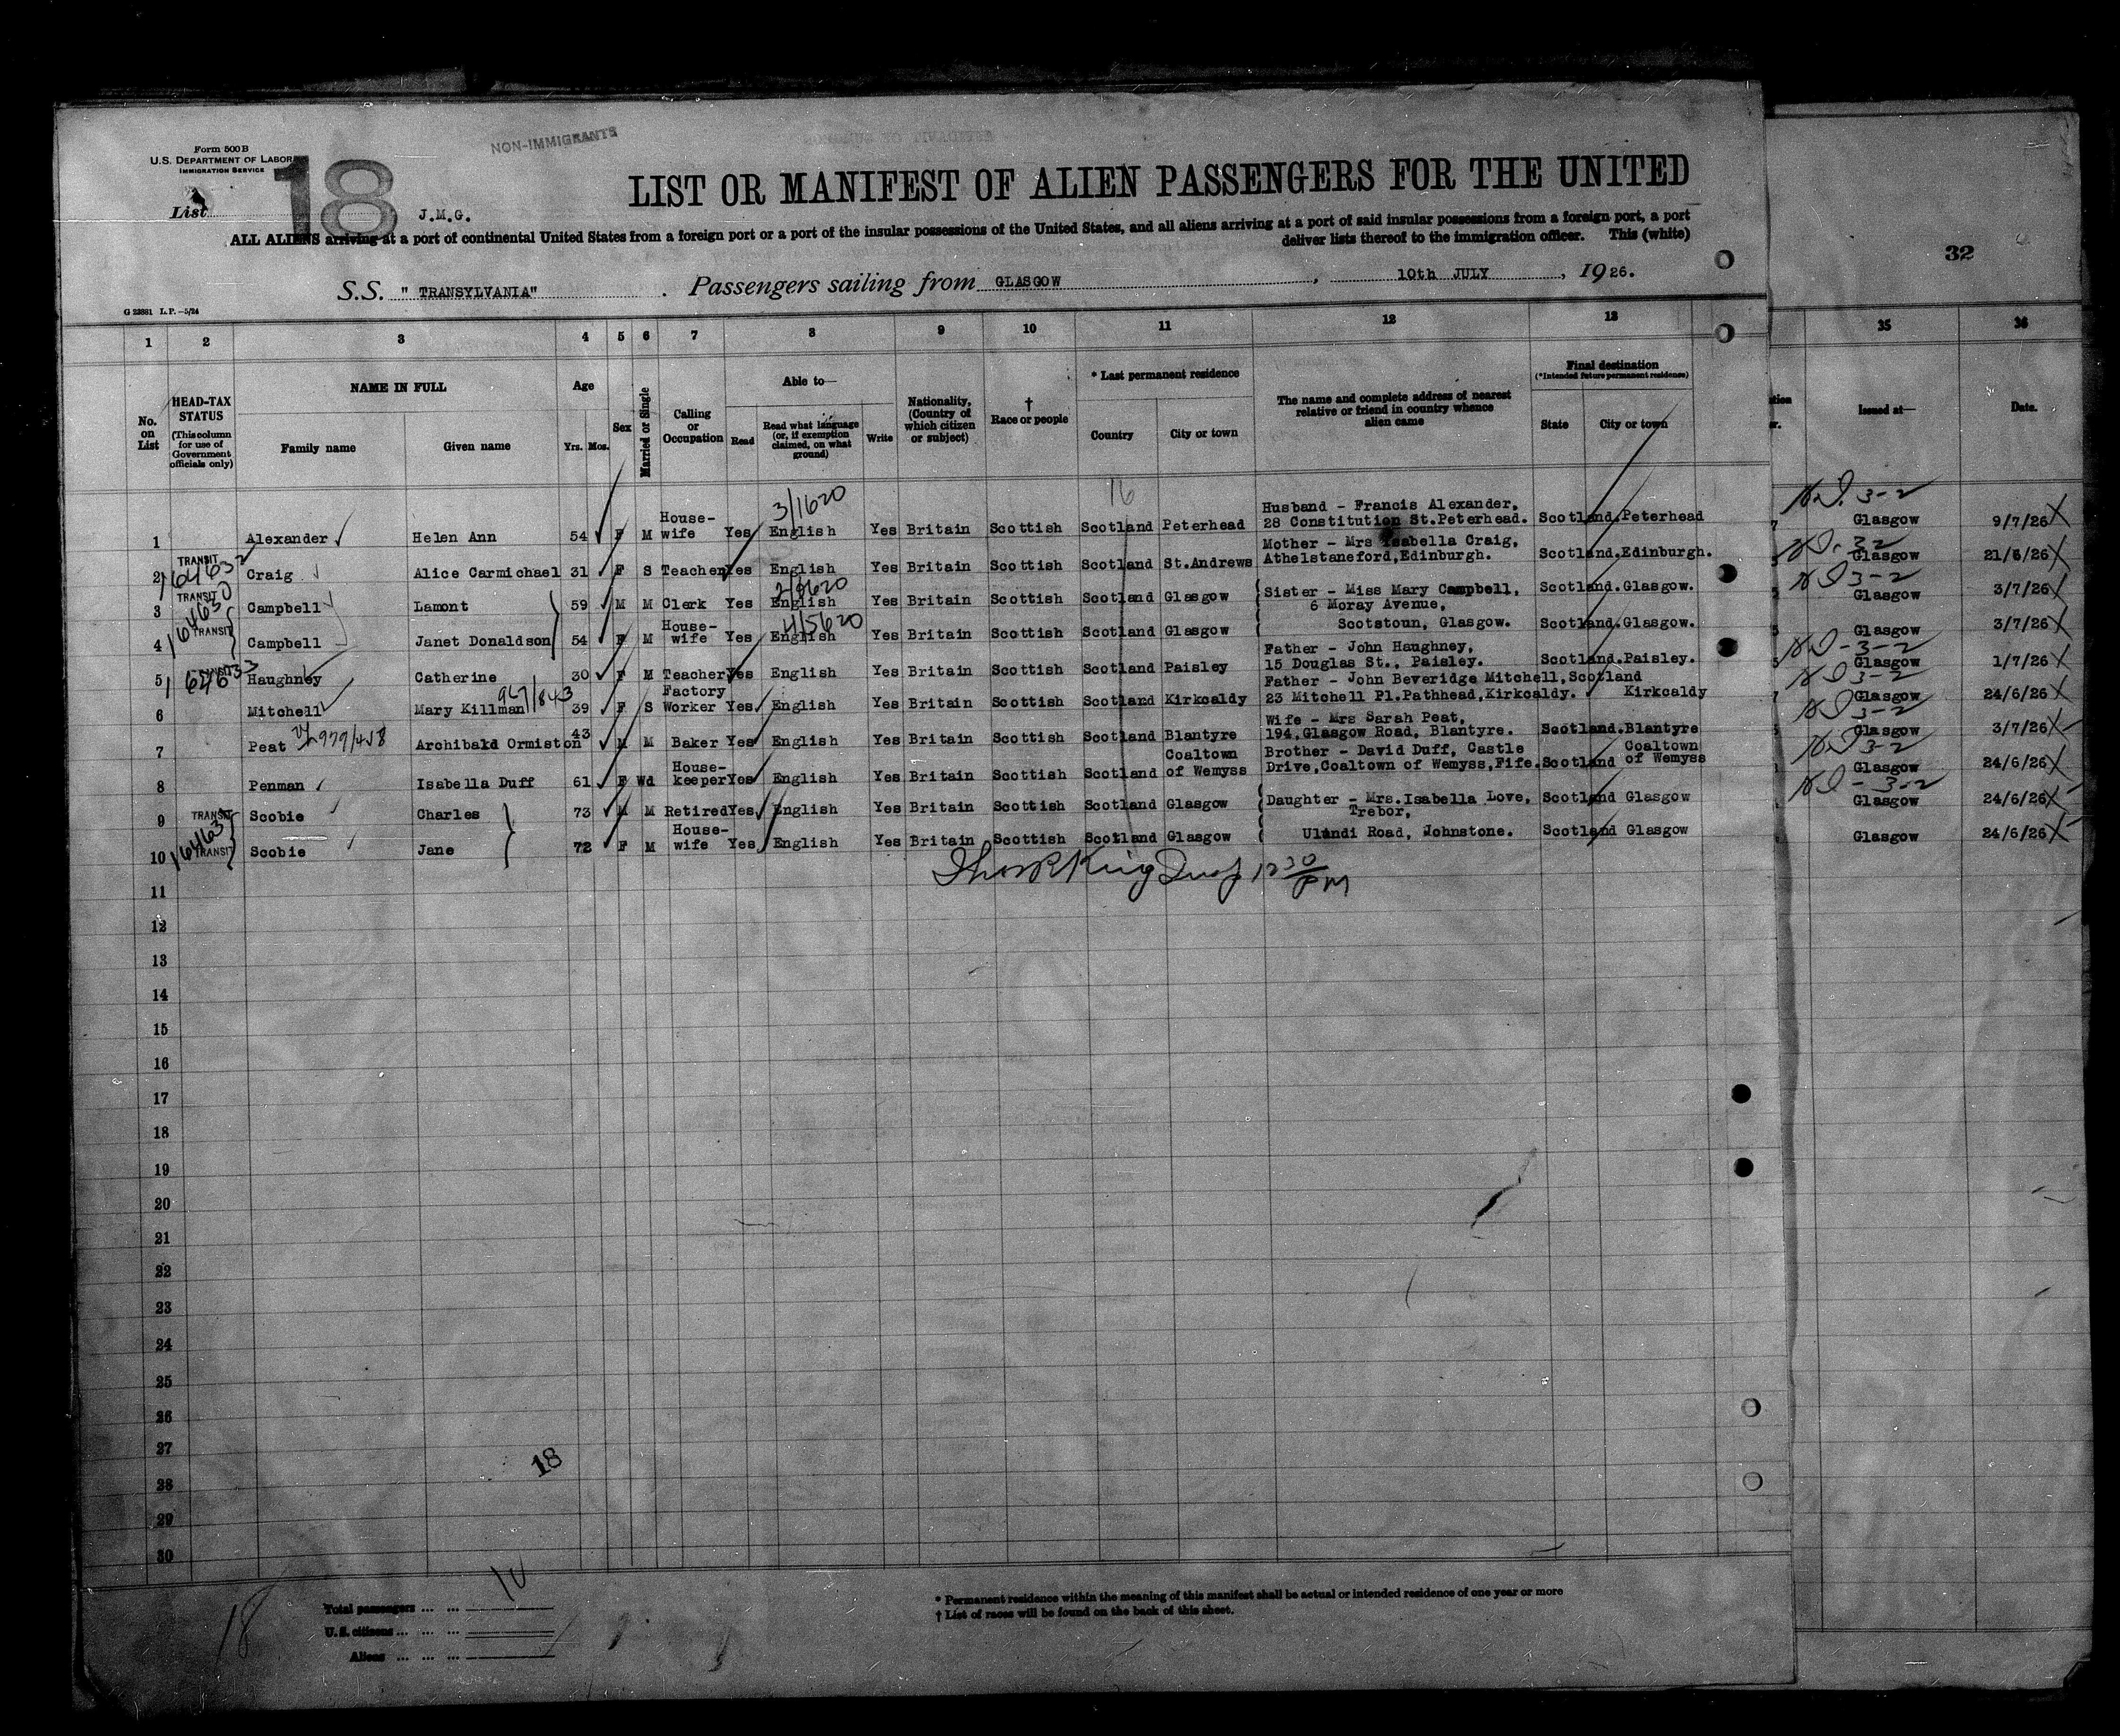 Form 500 B
U.S. DEPARTMENT OF LABOR
IMMIGRATION SERVICE
NON-IMMIGRANTS
List 18
J.M.G.
LIST OR MANIFEST OF ALIEN PASSENGERS FOR THE UNITED
ALL ALIENS arriving at a port of continental United States from a foreign port or a port of the insular possessions of the United States, and all aliens arriving at a port of said insular possessions from a foreign port, a port
deliver lists thereof to the immigration officer. This (white)
32
S.S. " TRANSYLVANIA" . Passengers sailing from GLASGOW , 10th JULY , 19 26.
G 23881 L.P.—5/24
1 2 3 4 5 6 7 8 9 10 11 12 13 35 36
No. on List
HEAD-TAX STATUS (This column for use of Government officials only)
NAME IN FULL
Family name Given name
Age
Yrs. Mos.
Sex
Married or Single
Calling or Occupation
Able to—
Read
Read what language (or, if exemption claimed, on what ground)
Write
Nationality, (Country of which citizen or subject)
† Race or people
* Last permanent residence
Country City or town
The name and complete address of nearest relative or friend in country whence alien came
Final destination
(*Intended future permanent residence)
State City or town
Issued at—
Date.
3/1620
16
1 Alexander Helen Ann 54 F M House-wife Yes English Yes Britain Scottish Scotland Peterhead Husband - Francis Alexander, 28 Constitution St.Peterhead. Scotland.Peterhead Glasgow 9/7/26
2 TRANSIT Craig Alice Carmichael 31 F S Teacher Yes English Yes Britain Scottish Scotland St.Andrews Mother - Mrs Isabella Craig, Athelstaneford,Edinburgh. Scotland.Edinburgh. Glasgow 21/6/26
3 TRANSIT Campbell Lamont 59 M M Clerk Yes English Yes Britain Scottish Scotland Glasgow Sister - Miss Mary Campbell, 6 Moray Avenue, Scotland.Glasgow. Glasgow 3/7/26
4 TRANSIT Campbell Janet Donaldson 54 F M House-wife Yes English Yes Britain Scottish Scotland Glasgow Scotstoun, Glasgow. Scotland.Glasgow. Glasgow 3/7/26
5 TRANSIT Haughney Catherine 30 F M Teacher Yes English Yes Britain Scottish Scotland Paisley Father - John Haughney, 15 Douglas St., Paisley. Scotland.Paisley. Glasgow 1/7/26
6 Mitchell Mary Killman 967/843 39 F S Factory Worker Yes English Yes Britain Scottish Scotland Kirkcaldy Father - John Beveridge Mitchell, 23 Mitchell Pl.Pathhead,Kirkcaldy. Scotland Kirkcaldy Glasgow 24/6/26
7 Peat Archibald Ormiston 43 M M Baker Yes English Yes Britain Scottish Scotland Blantyre Wife - Mrs Sarah Peat, 194,Glasgow Road, Blantyre. Scotland.Blantyre Glasgow 3/7/26
8 Penman Isabella Duff 61 F Wd House-keeper Yes English Yes Britain Scottish Scotland Coaltown of Wemyss Brother - David Duff, Castle Drive,Coaltown of Wemyss,Fife. Scotland Coaltown of Wemyss Glasgow 24/6/26
9 TRANSIT Scobie Charles 73 M M Retired Yes English Yes Britain Scottish Scotland Glasgow Daughter - Mrs.Isabella Love, Trebor, Scotland Glasgow Glasgow 24/6/26
10 TRANSIT Scobie Jane 72 F M House-wife Yes English Yes Britain Scottish Scotland Glasgow Ulundi Road, Johnstone. Scotland Glasgow Glasgow 24/6/26
King 12 30 PM
11
12
13
14
15
16
17
18
19
20
21
22
23
24
25
26
27
28
29
30
18
18
10
Total passengers ... ...
U. S. citizens ... ... ...
Aliens ... ... ...
* Permanent residence within the meaning of this manifest shall be actual or intended residence of one year or more
† List of races will be found on the back of this sheet.